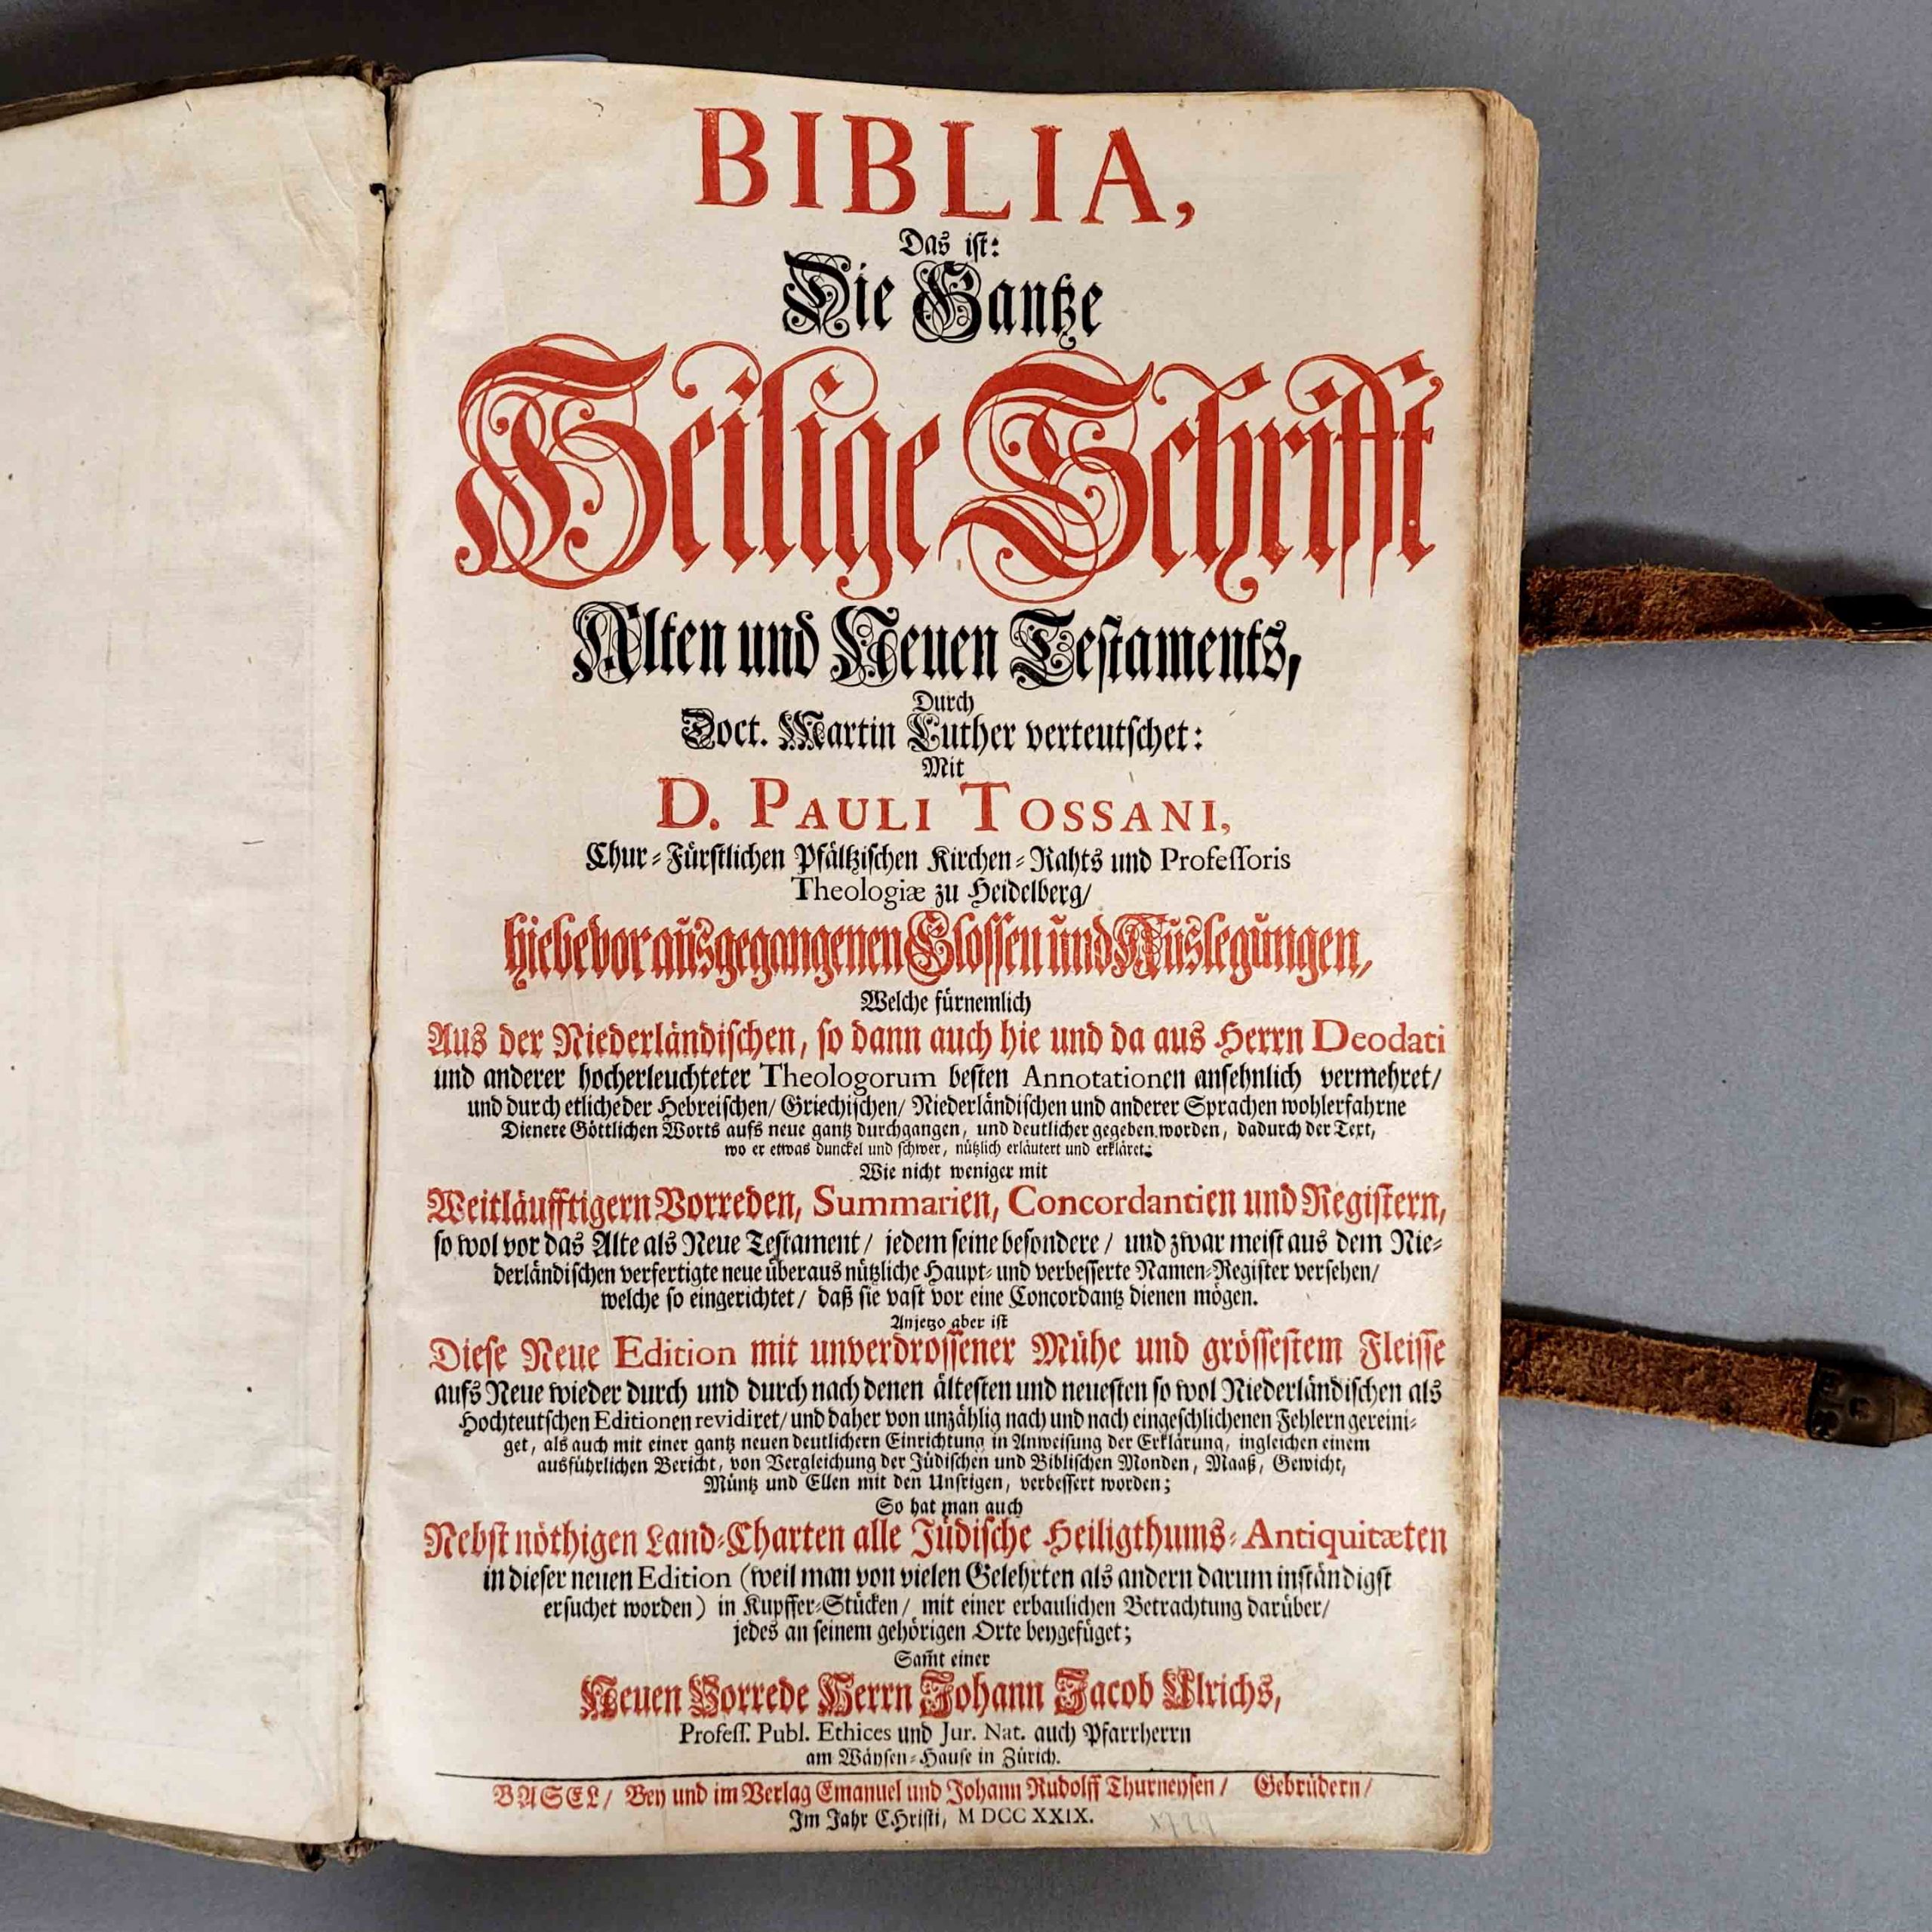 BIBLIA,
Das ist:
Die Gantze
Heilige Schrifft
Alten und Neuen Testaments,
Durch
Doct. Martin Luther verteutschet:
Mit
D. PAULI TOSSANI,
Chur-Fürstlichen Pfältzischen Kirchen-Rahts und Professoris
Theologiæ zu Heidelberg/
hiebevor ausgegangenen Glossen und Auslegungen,
Welche fürnemlich
Aus der Niederländischen, so dann auch hie und da aus Herrn Deodati
und anderer hocherleuchteter Theologorum besten Annotationen ansehnlich vermehret/
und durch etliche der Hebreischen/ Griechischen/ Niederländischen und anderer Sprachen wohlerfahrne
Dienere Göttlichen Worts aufs neue gantz durchgangen, und deutlicher gegeben worden, dadurch der Text,
wo er etwas dunckel und schwer, nützlich erläutert und erkläret:
Wie nicht weniger mit
Weitläufftigern Vorreden, Summarien, Concordantien und Registern,
so wol vor das Alte als Neue Testament/ jedem seine besondere/ und zwar meist aus dem Nie-
derländischen verfertigte neue überaus nützliche Haupt- und verbesserte Namen-Register versehen/
welche so eingerichtet/ daß sie vast vor eine Concordantz dienen mögen.
Anjetzo aber ist
Diese Neue Edition mit unverdrossener Mühe und grössestem Fleisse
aufs Neue wieder durch und durch nach denen ältesten und neuesten so wol Niederländischen als
Hochteutschen Editionen revidiret/ und daher von unzählig nach und nach eingeschlichenen Fehlern gereini-
get, als auch mit einer gantz neuen deutlichern Einrichtung in Anweisung der Erklärung, ingleichen einem
ausführlichen Bericht, von Vergleichung der Jüdischen und Biblischen Monden, Maaß, Gewicht,
Müntz und Ellen mit den Unsrigen, verbessert worden;
So hat man auch
Nebst nöthigen Land-Charten alle Jüdische Heiligthums-Antiquitæten
in dieser neuen Edition (weil man von vielen Gelehrten als andern darum inständigst
ersuchet worden) in Kupffer-Stücken/ mit einer erbaulichen Betrachtung darüber/
jedes an seinem gehörigen Orte beygefüget;
Sam̃t einer
Neuen Vorrede Herrn Johann Jacob Ulrichs,
Profess. Publ. Ethices und Jur. Nat. auch Pfarrherrn
am Wäysen-Hause in Zürich.
BASEL/ Bey und im Verlag Emanuel und Johann Rudolff Thurneysen/ Gebrüdern/
Im Jahr CHristi, M DCC XXIX.
1729